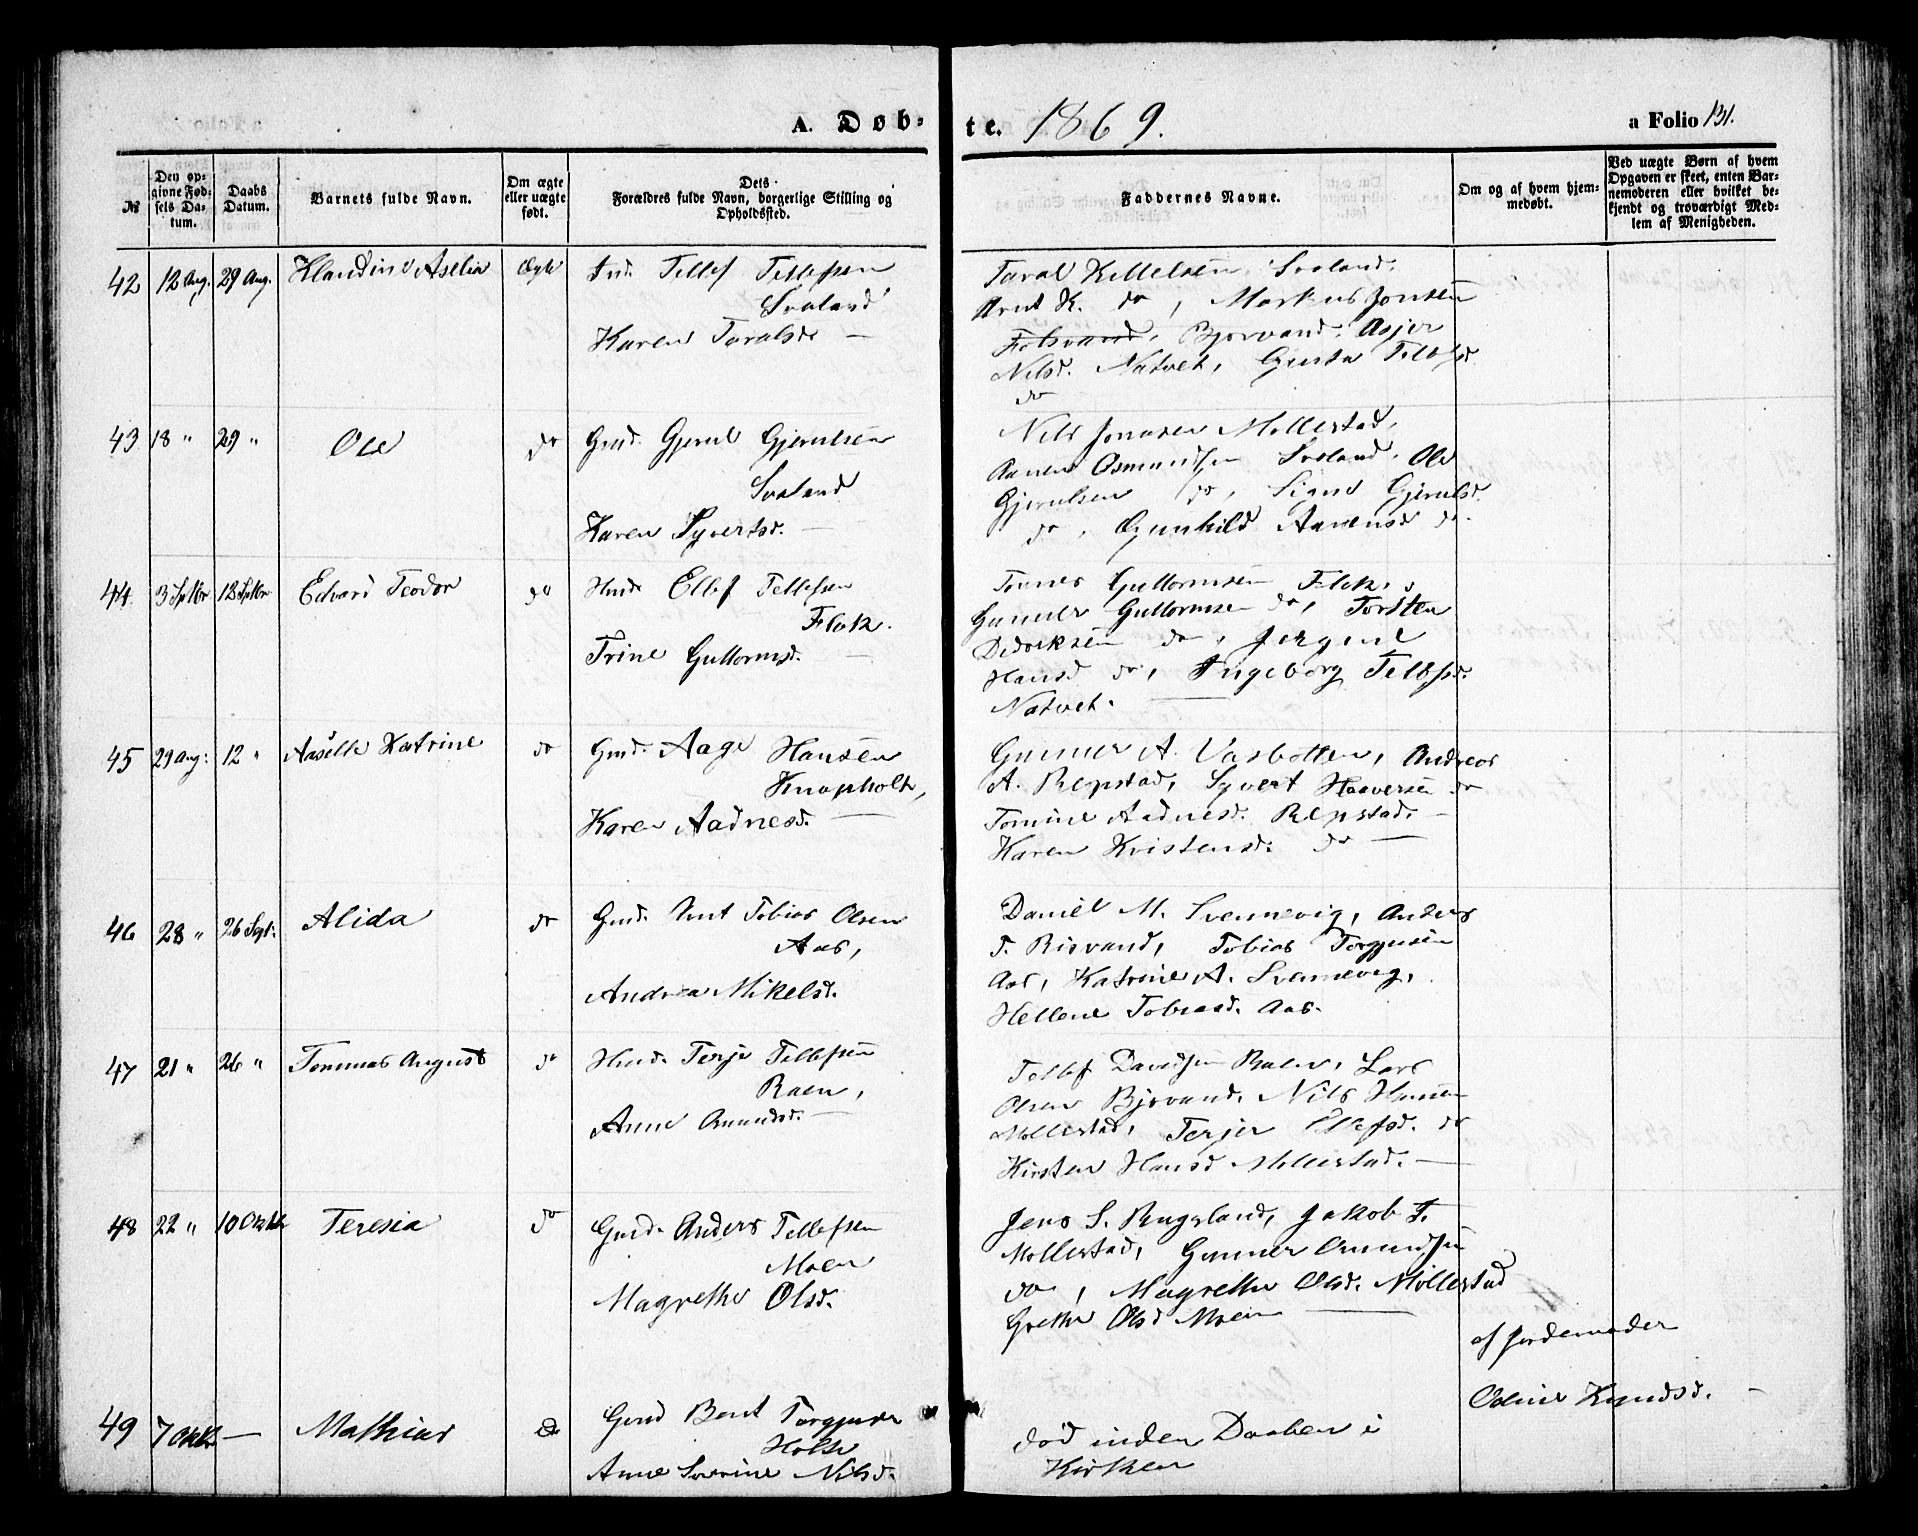 A. Døb- te. 1869.
a Folio 131.
№
Den op-
givne Fød-
sels Da-
tum.
Daabs
Datum.
Barnets fulde Navn.
Om ægte
eller uægte
født.
Dets
Forældres fulde Navn, borgerlige Stilling og
Opholdssted.
Faddernes Navne.
Om og af hvem hjem-
medøbt.
Ved uægte Børn af hvem
Opgaven er skeet, enten Bar-
nemoderen eller hvilket be-
kjendt og troværdigt Med-
lem af Menigheden.
42 12 Aug. 29 Aug. Klaudine Aselia Ægte Tellef Tellefsen
Svaland
Karen Taralsd. —
Taral Kittelsen, Svaland.
Arnt K. do, Markus Jonsen
Bjorvand. Asjer
Nilsd. Natvet, Gusta Tellefsd
do
43 18 " 29 " Ole do Gmd. Gjerul Gjerulsen
Svaland
Karen Syvertsd. —
Nils Jonasen Mollestad,
Aanen Osmundsen Svaland. Ole
Gjerulsen do, Signe Gjerulsd.
do, Gunhild Aanensd do.
44. 3 Sptbr 12 Sptbr Edvard Teodor do Hmd. Ellef Tellefsen
Flak.
Trine Guttormsd. —
Tønnes Guttormsen Flak,
Gunner Guttormsen do, Torsten
Didriksen do, Jørgine
Hansd do, Ingeborg Tellefsd.
Natvet. —
45 29 Aug. 12 " Aaselle Katrine do Gmd. Aage Hansen
Knapholt,
Karen Aadnesd. —
Gunner A. Vasbotten, Andreas
A. Repstad, Syvert Haaversen do
Tomine Aadnesd. Repstad. —
Karen Kristensd. do —
46 28 " 26 Sept. Alida do Gmd. Arnt Tobias Olsen
Aas,
Andrea Mikelsd.
Daniel M. Svennevig, Anders
T. Risvand, Tobias Torgjusen
Aas, Katrine A. Svennevig,
Hellene Tobiasd. Aas.
47 21 " 26 " Tommas August do Hmd. Terje Tellefsen
Raen,
Anne Amundsd. —
Tellef Davidsen Raen, Lars
Olsen Bjorvand. Nils Hansen
Mollestad, Terjer Ellefsd. do
Kirsten Hansd Mollestad. —
48 22 " 10 Oktbr Teresia do Gmd. Anders Tellefsen
Moen
Magrethe Olsd.
Jens S. Rugsland, Jakob T.
Mollestad, Gunner Osmundsen
do, Magrethe Olsd. Mollestad
Grethe Olsd Moen —
49 7 Oktbr — Mathias do Gmd Bent Torgjusen
Holte
Anne Severine Nilsd.
død inden Daaben i
Kirken
af Jordemoder
Odine Knudsd. —